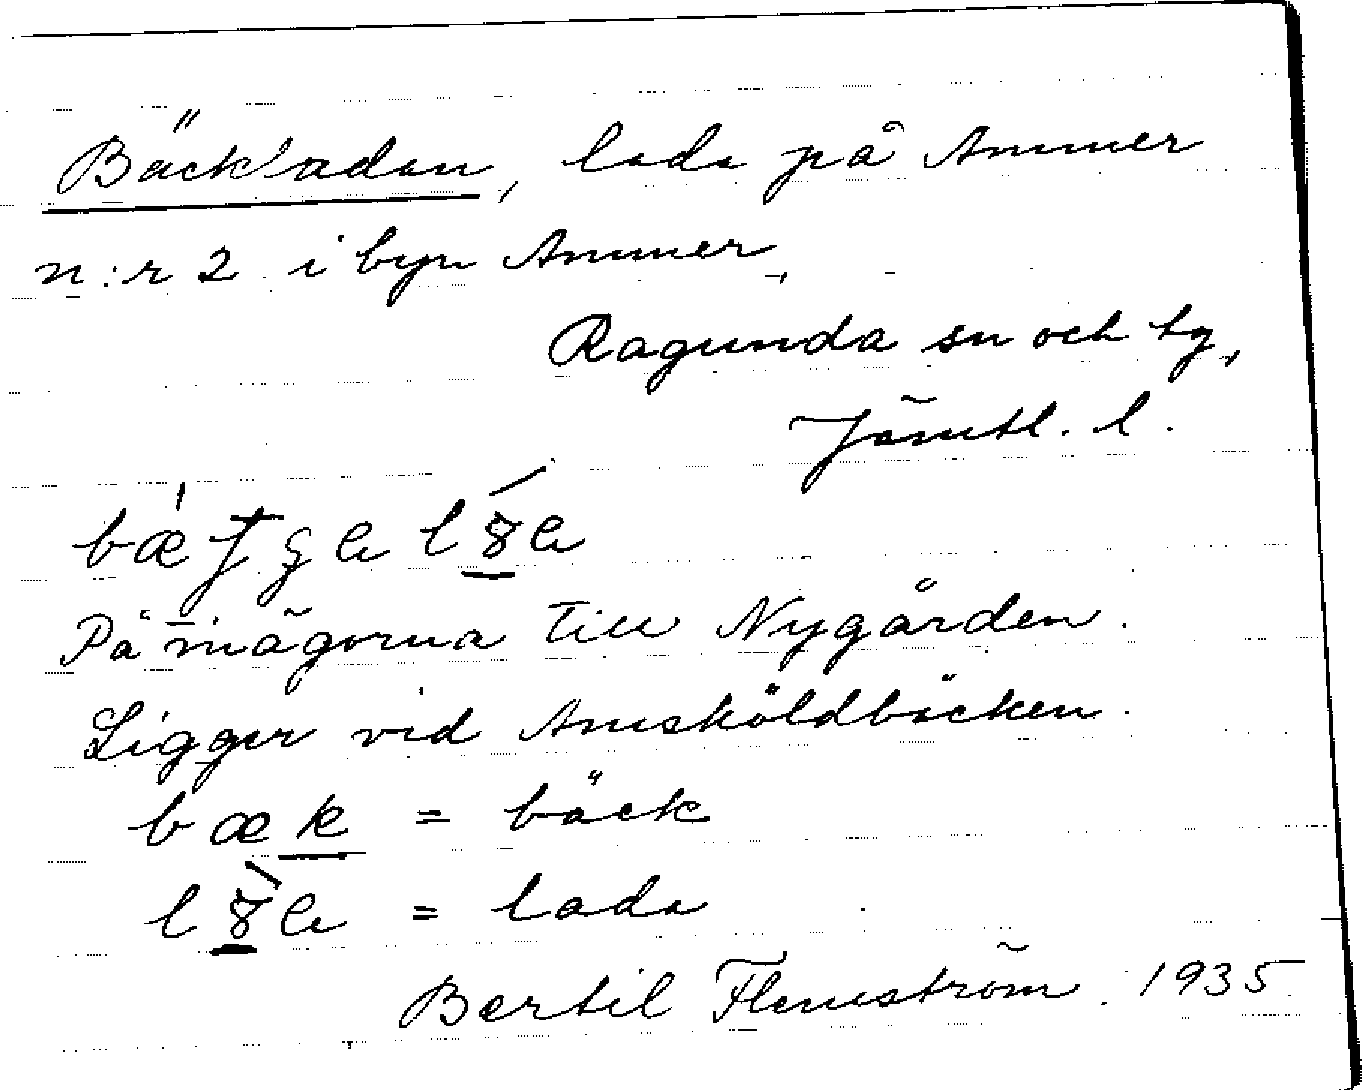 Bäckladan, lada på Ammer
n:r 2 i byn Ammer,
Ragunda sn och tg,
Jämtl. l.
På inägorna till Nygården.
Ligger vid Amsköldbäcken.
bæk = bäck
= lada
Bertil Flemström. 1935